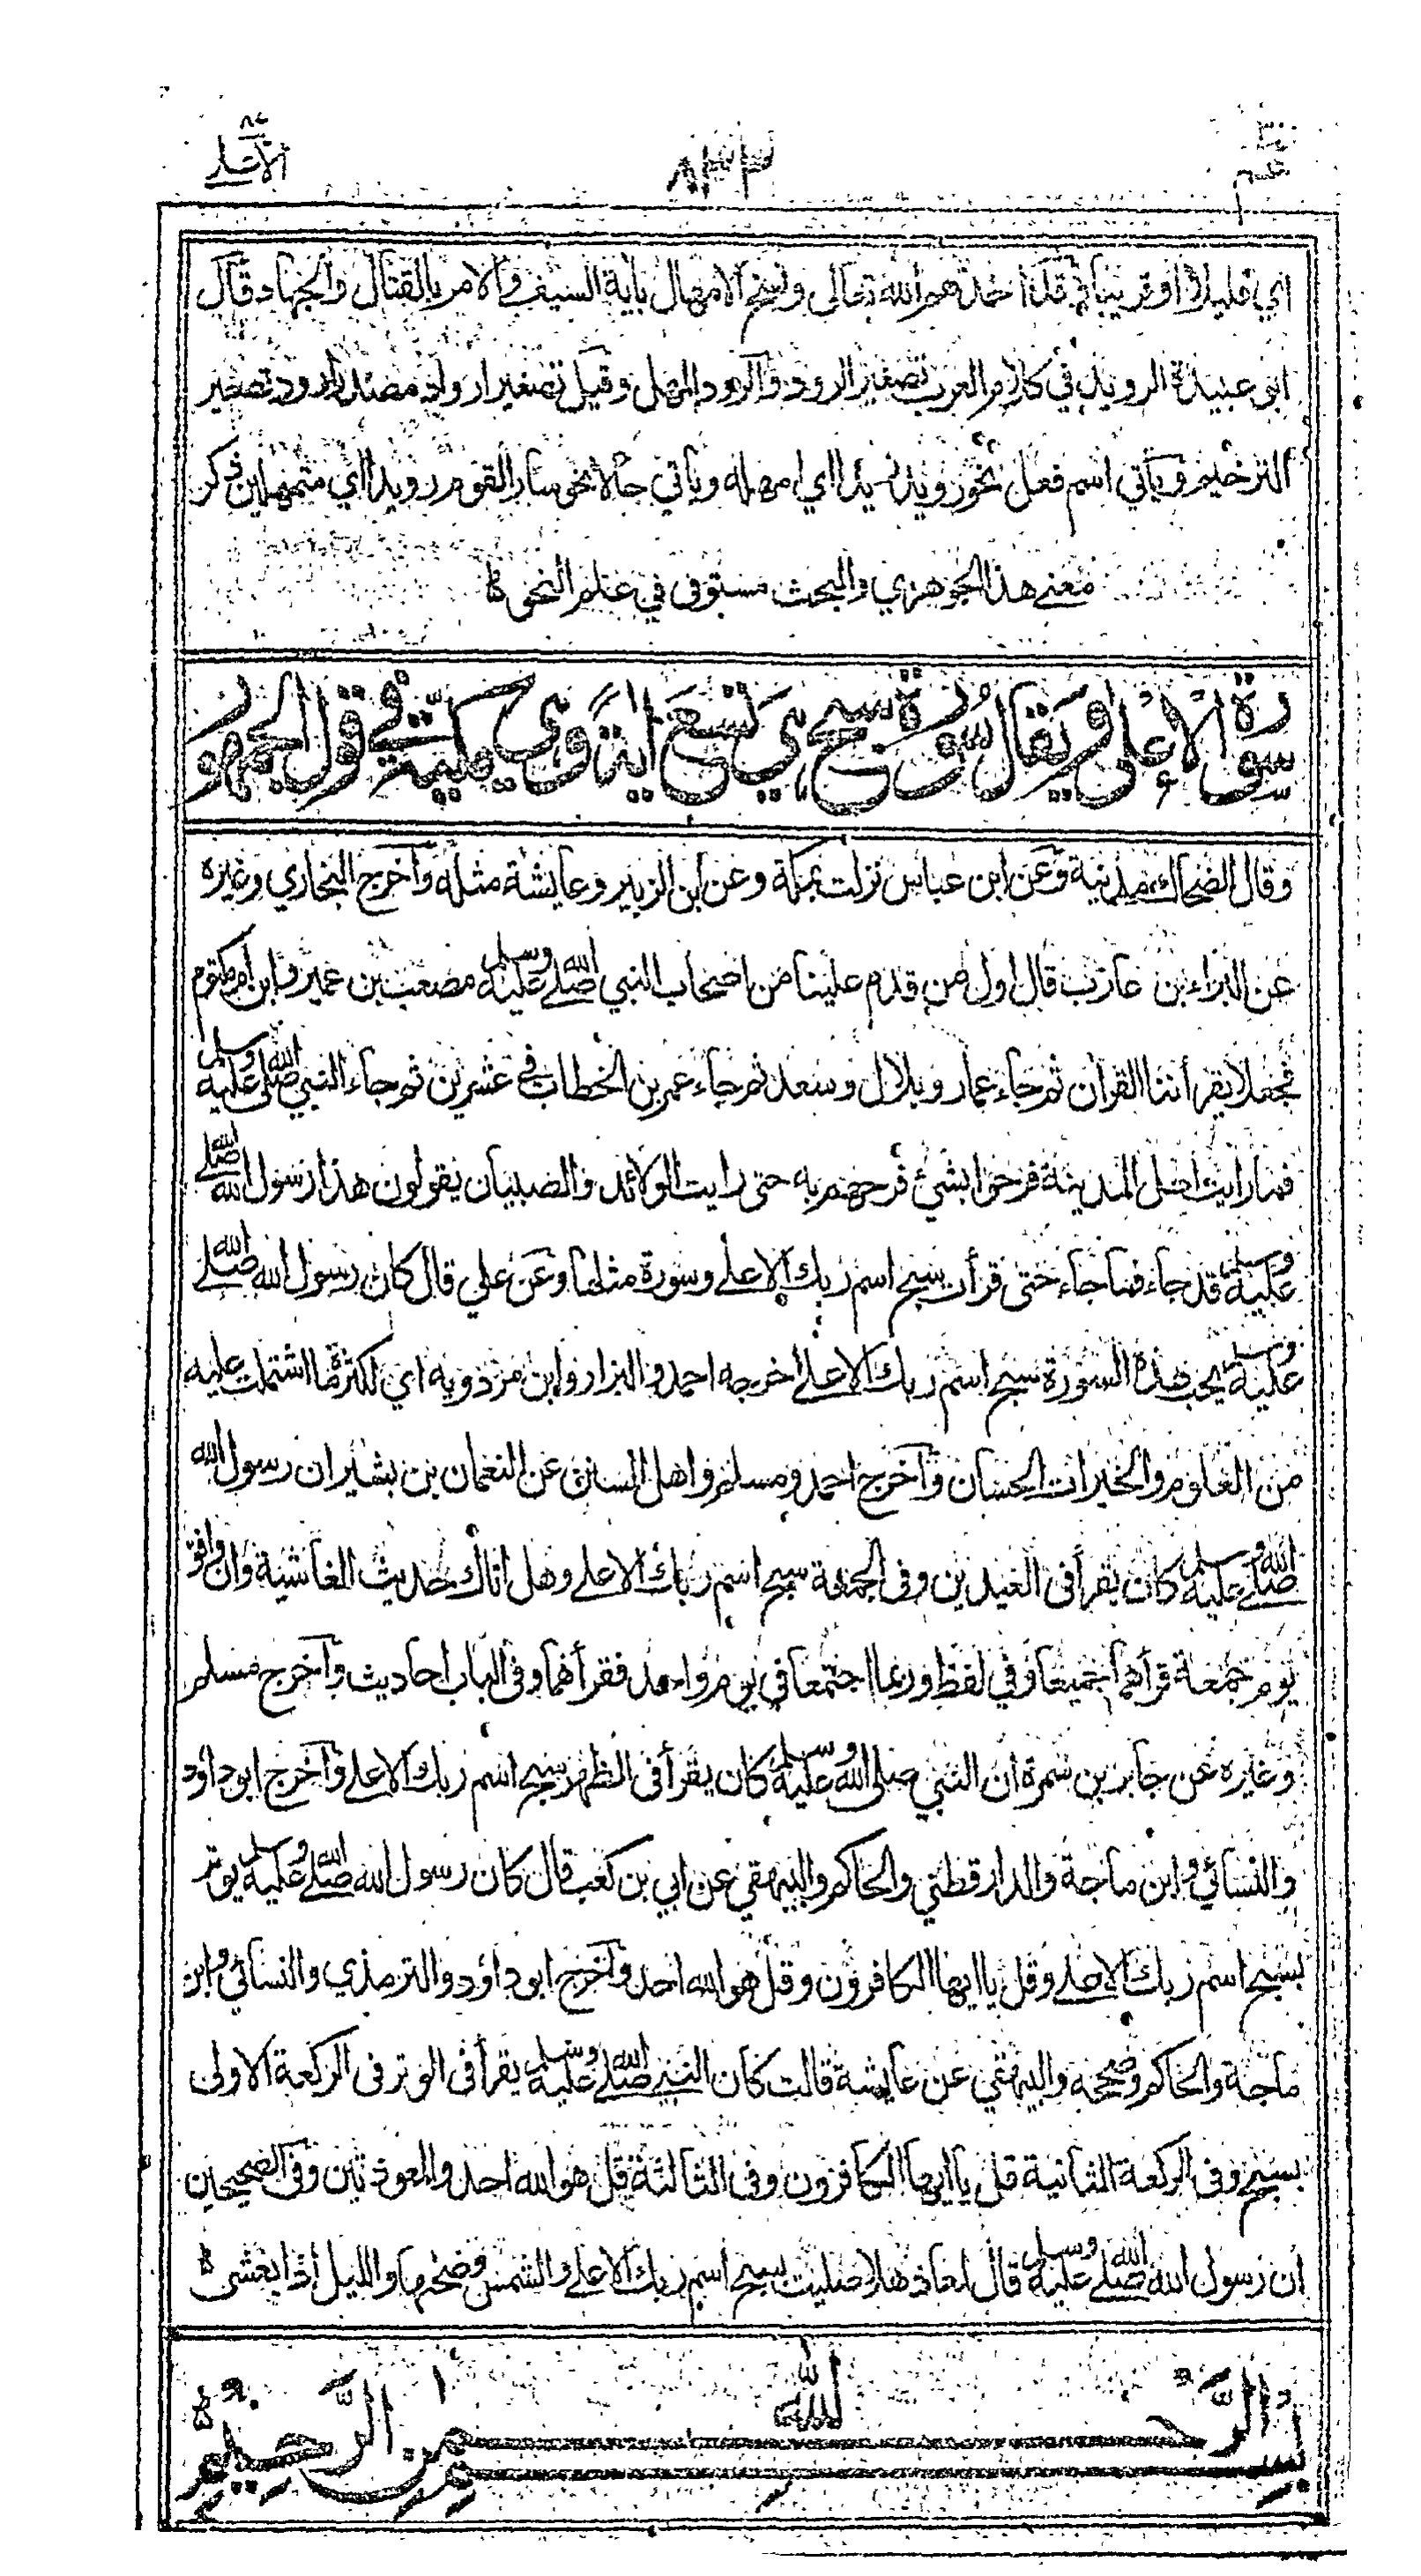 عم ٣٠
٨٣٣
الاعلى ٨٧
اي قليلا او قريبا قلت اخذهم الله تعالى ونسخ الامهال باية السيف والامر بالقتال والجهاد قال
ابو عبيدة الرويد في كلام العرب تصغير الرود والرود المهل وقيل تصغير ارواد مصدر ارود تصغير
الترخيم ويأتي اسم فعل نحو رويد زيدا اي امهله ويأتي حالا نحو سار القوم رويدا اي متمهلين ذكر
معنى هذا الجوهري والبحث مستوفى في علم النحو
سورة الاعلى ويقال سورة سبح هي تسع اية وهي مكية في قول الجمهور
وقال الضحاك مدنية وعن ابن عباس نزلت بمكة وعن ابن الزبير وعايشة مثله وأخرج البخاري وغيره
عن البراء بن عازب قال اول من قدم علينا من اصحاب النبي صلى الله عليه وسلم مصعب بن عمير وابن ام مكتوم
فجعلا يقرأننا القرأن ثم جاء عمار وبلال وسعد ثم جاء عمر بن الخطاب في عشرين ثم جاء النبي صلى الله عليه وسلم
فما رايت اهل المدينة فرحوا بشئ فرحهم به حتى رايت الولائد والصبيان يقولون هذا رسول الله صلى الله
عليه وسلم قد جاء فما جاء حتى قرأت سبح اسم ربك الاعلى وسورة مثلها وعن علي قال كان رسول الله صلى الله
عليه وسلم يحب هذه السورة سبح اسم ربك الاعلى أخرجه احمد والبزار وابن مردويه اي لكثرة ما اشتملت عليه
من العلوم والخيرات الحسان وأخرج احمد ومسلم واهل السنن عن النعمان بن بشير ان رسول الله
صلى الله عليه وسلم كان يقرأ في العيدين وفي الجمعة سبح اسم ربك الاعلى وهل اتاك حديث الغاشية وان وافق
يوم جمعة قرأهما جميعا وفي لفظ وربما اجتمعا في يوم واحد فقرأهما وفي الباب احاديث وأخرج مسلم
وغيره عن جابر بن سمرة ان النبي صلى الله عليه وسلم كان يقرأ في الظهر سبح اسم ربك الاعلى وأخرج ابو داود
والنسائي وابن ماجة والدارقطني والحاكم والبيهقي عن ابي بن كعب قال كان رسول الله صلى الله عليه وسلم يوتر
بسبح اسم ربك الاعلى وقل يا ايها الكافرون وقل هو الله احد وأخرج ابو داود والترمذي والنسائي وابن
ماجة والحاكم وصححه والبيهقي عن عايشة قالت كان النبي صلى الله عليه وسلم يقرأ في الوتر في الركعة الاولى
بسبح وفي الركعة الثانية قل يا ايها الكافرون وفي الثالثة قل هو الله احد والمعوذتين وفي الصحيحين
ان رسول الله صلى الله عليه وسلم قال لمعاذ هلا صليت بسبح اسم ربك الاعلى والشمس وضحها والليل اذا يغشى
بسم الله الرحمن الرحيم